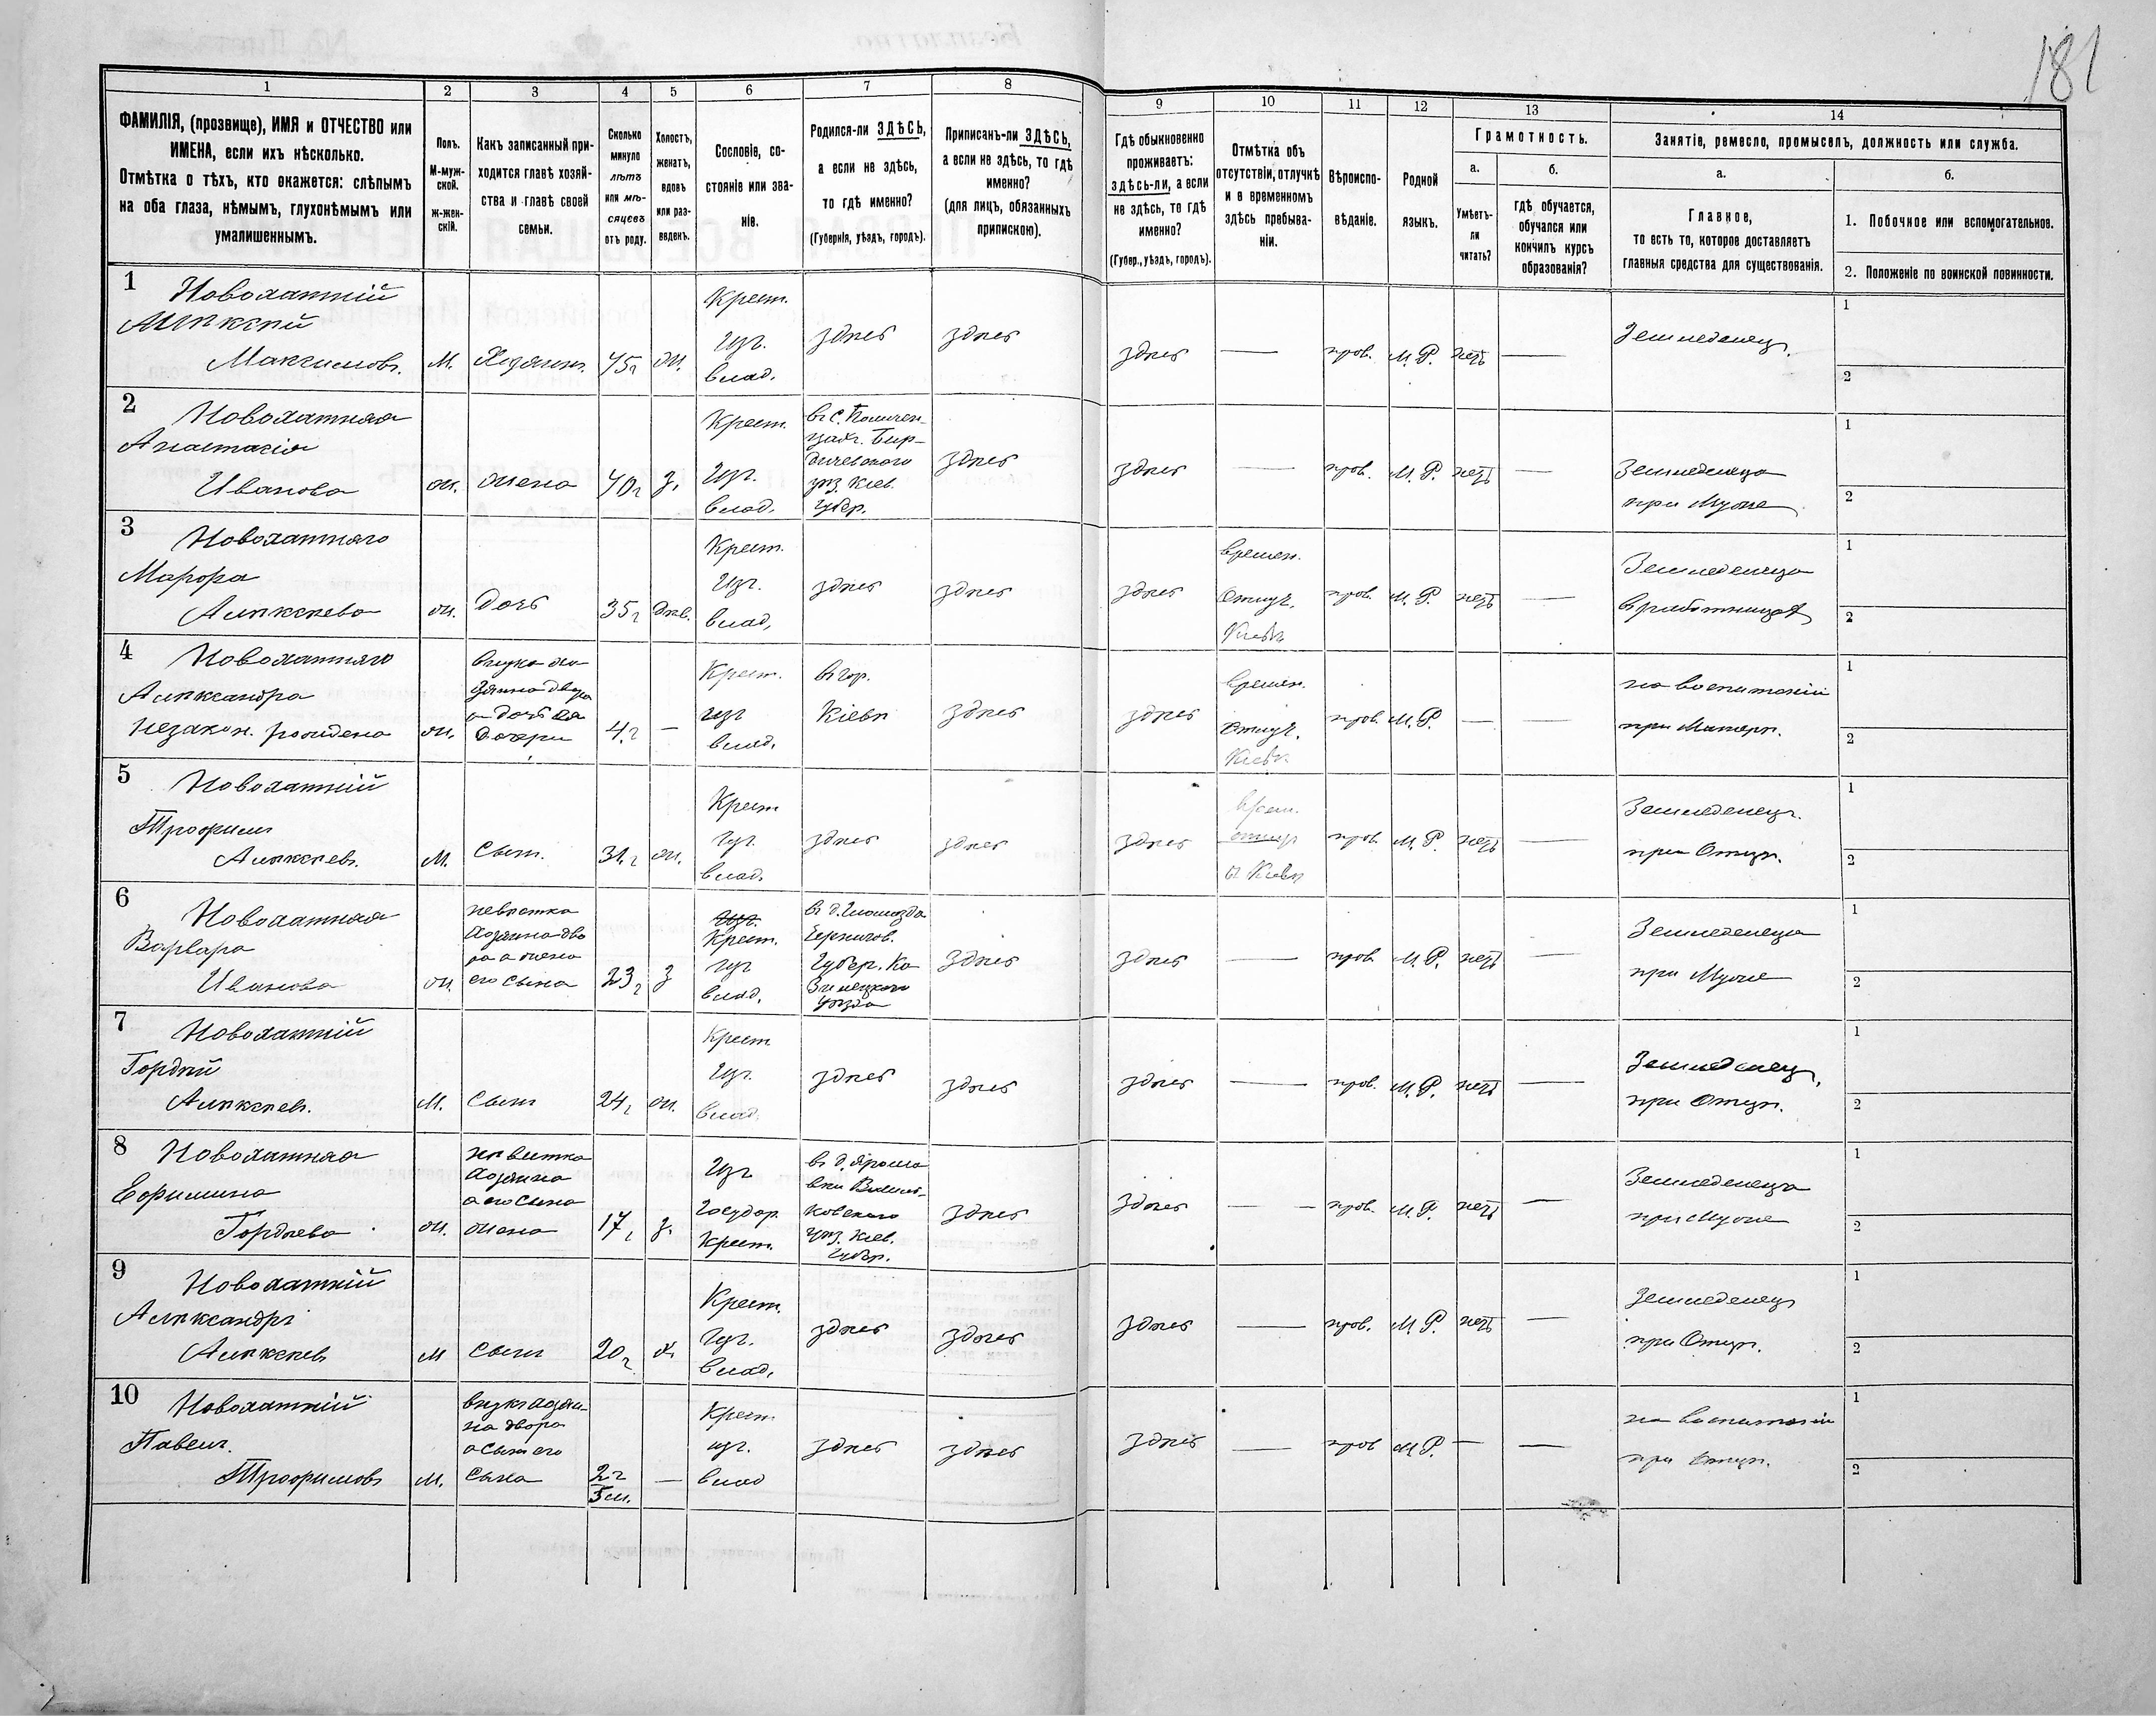 181
1
2
3
4
5
6
7
8
9
10
11
12
13
14
ФАМИЛІЯ, (прозвище), ИМЯ и ОТЧЕСТВО или
ИМЕНА, если ихъ нѣсколько.
Отмѣтка о тѣхъ, кто окажется: слѣпымъ
на оба глаза, нѣмымъ, глухонѣмымъ или
умалишеннымъ.
Полъ.
М-муж-
ской.
ж-жен-
скій.
Какъ записанный при-
ходится главѣ хозяй-
ства и главѣ своей
семьи.
Сколько
минуло
лѣтъ
или мѣ-
сяцевъ
отъ роду.
Холостъ,
женатъ,
вдовъ
или раз-
веденъ.
Сословіе, со-
стояніе или зва-
ніе.
Родился-ли ЗДѢСЬ,
а если не здѣсь,
то гдѣ именно?
(Губернія, уѣздъ, городъ).
Приписанъ-ли ЗДѢСЬ,
а если не здѣсь, то гдѣ
именно?
(для лицъ, обязанныхъ
припискою).
Гдѣ обыкновенно
проживаетъ:
здѣсь-ли, а если
не здѣсь, то гдѣ
именно?
(Губер., уѣздъ, городъ).
Отмѣтка объ
отсутствіи, отлучкѣ
и о временномъ
здѣсь пребыва-
ніи.
Вѣроиспо-
вѣданіе.
Родной
языкъ.
Грамотность.
а.
Умѣетъ-
ли
читать?
б.
гдѣ обучается,
обучался или
кончилъ курсъ
образованія?
Занятіе, ремесло, промыселъ, должность или служба.
а.
Главное,
то есть то, которое доставляетъ
главныя средства для существованія.
б.
1. Побочное или вспомогательное.
2. Положеніе по воинской повинности.
1
Новохатній
Алексѣй
Максимовъ.
М.
Хозяинъ.
ж.
Крест.
изъ.
влад.
здѣсь
здѣсь
здѣсь
—
прав.
М. Р.
нетъ
—
Земледелецъ.
1
2
2
Новохатная
Анастасія
Иванова
ж.
жена
40 г
з.
Крест.
изъ.
влад.
дичевского
уѣз. Кіев.
Губер.
здѣсь
здѣсь
—
прав.
М. Р.
нетъ
—
Земледелица
при Муже
1
2
3
Алексѣева
ж.
дочь
35 г
дѣв.
Крест.
изъ.
влад.
здѣсь
здѣсь
здѣсь
времен.
отлуч.
Кіевѣ
прав.
М. Р.
нетъ
—
Земледелица
1
2
4
Александра
незакон. рождена
ж.
4 г
—
Крест.
изъ
влад.
въ гор.
Кіевѣ
здѣсь
здѣсь
времен.
отлуч.
Кіевѣ
прав.
М. Р.
—
—
на воспитаніи
при Матери.
1
2
5
Новохатній
Трофимъ
Алексѣевъ.
М.
Сынъ.
31 г
ж.
Крест
изъ.
влад.
здѣсь
здѣсь
здѣсь
врем.
отлуч
въ Кіевѣ
прав.
М. Р.
нетъ
—
Земледелецъ.
при Отцѣ.
1
2
6
Новохатная
Варвара
Иванова
ж.
невѣстка
хозяина дво
ра а жена
его сына
23 г
з
Крест.
изъ
влад.
Чернигов.
Губер. Ко
зелецкого
уѣзда
здѣсь
здѣсь
—
прав.
М. Р.
нетъ
—
Земледелица
при Муже
1
2
7
Новохатній
Гордѣй
Алексѣев.
М.
Сынъ
24 г
ж.
Крест
изъ.
влад.
здѣсь
здѣсь
здѣсь
—
прав.
М. Р.
нетъ
—
Земледелец,
при Отцѣ.
1
2
8
Новохатная
Гордѣева
ж.
невѣстка
хозяина
а его сына
жена
17 г
з.
изъ
Государ.
Крест.
уѣз. Кіев.
Губер.
здѣсь
здѣсь
—
прав.
М. Р.
нетъ
—
Земледелица
при Муже
1
2
9
Новохатній
Александръ
Алексѣевъ
М
Сынъ
20 г
х.
Крест.
изъ.
влад.
здѣсь
здѣсь
здѣсь
—
прав.
М. Р.
нетъ
—
Земледелецъ
при Отцѣ.
1
2
10
Новохатній
Павелъ.
Трофимовъ
М.
внукъ хозяи-
на двора
а сынъ его
сына
2 г
5 м.
—
Крест
изъ.
влад
здѣсь
здѣсь
здѣсь
—
прав
М. Р.
—
—
на воспитаніи
при Отцѣ.
1
2